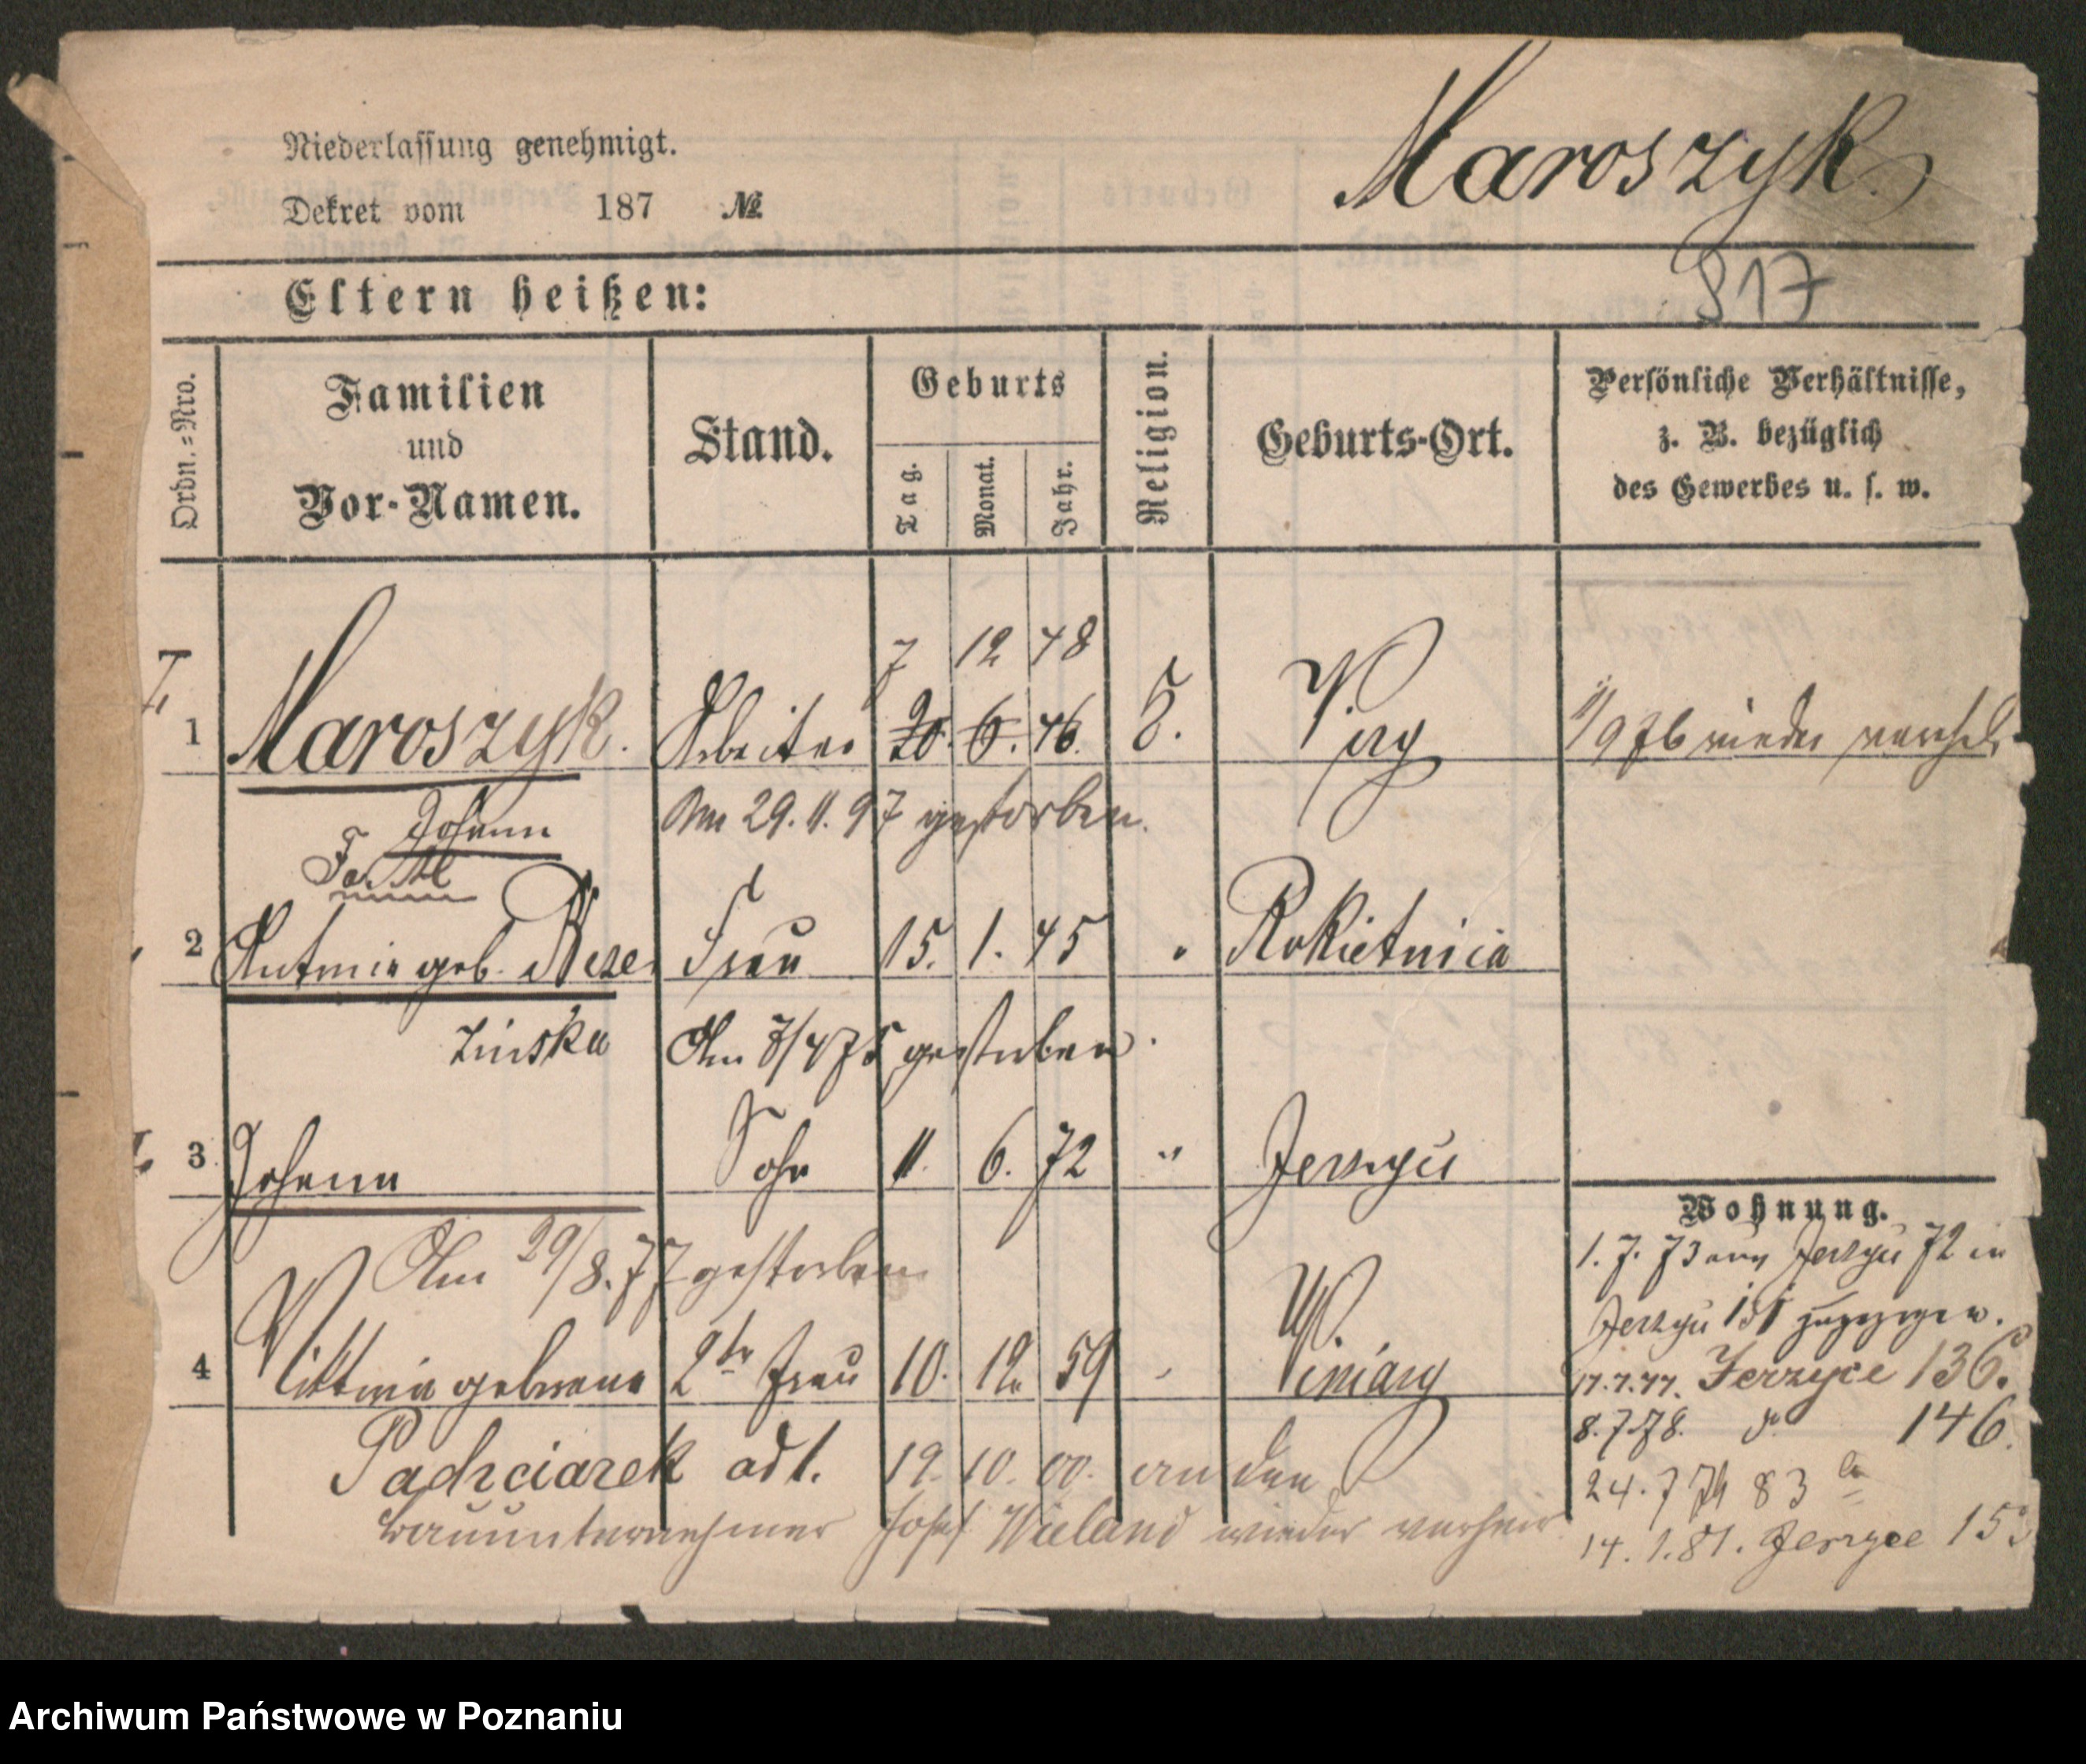 Maroszyk.
Niederlassung genehmigt.
Dekret vom 187 №
Eltern heißen:
817
Ordn.=Nro.
Familien
und
Vor-Namen.
Stand.
Geburts
Tag.
Monat.
Jahr.
Religion.
Geburts-Ort.
Persönliche Verhältnisse,
z. B. bezüglich
des Gewerbes u. s. w.
7 12 48
1 Maroszyk. Arbeiter 20. 6. 46. 9/76 wieder
Johann Am 29. 11. 97 gestorben.
2 geb. Frau 15. 1. 45 " Rokietnica
zinska Am 7/4 75 gestorben.
3 Johann Sohn 11. 6. 72 " Jerzyce
Am 29/8. 77 gestorben
Wohnung.
1. 7. 73 aus Jerzyce 72 in
Jerzyce 151 zugezogen.
4 geborene 2te Frau 10. 12. 59 " Winiary
17.7.77. Jerzyce 136.
8.7.78. do 146.
Pachciarek adl. 19. 10. 00. an den
24. 7 79 83 a
Bauunternehmer Josef Wieland wieder verheir
14. 1. 81. Jerzyce 15
Archiwum Państwowe w Poznaniu